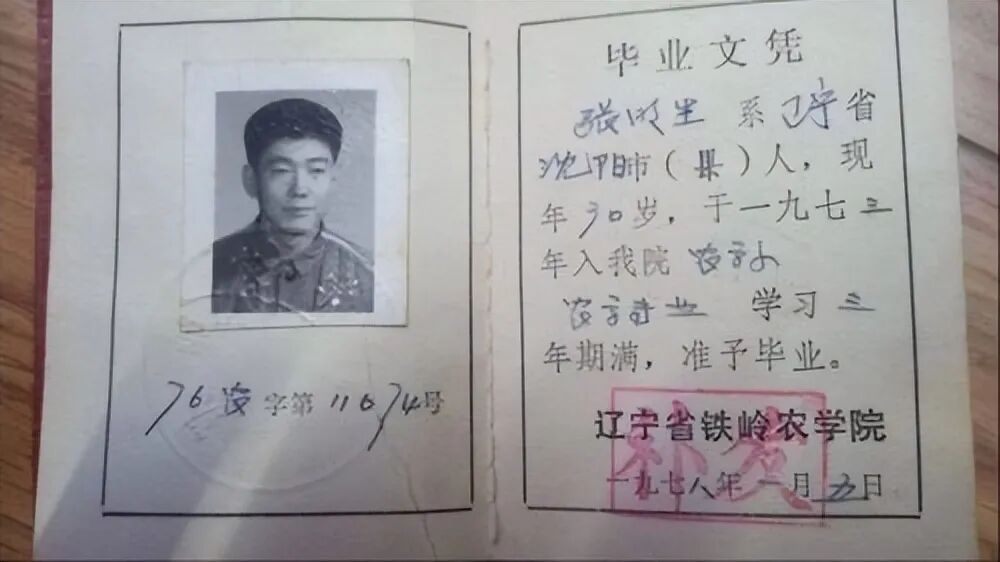 76 农 字第 11674号
毕业文凭
张 生 系辽宁省
沈阳市(县)人,现
年30岁,于一九七三
年入我院农
农 业 学习三
年期满,准予毕业。
辽宁省铁岭农学院
一九七八年一月五日
补发